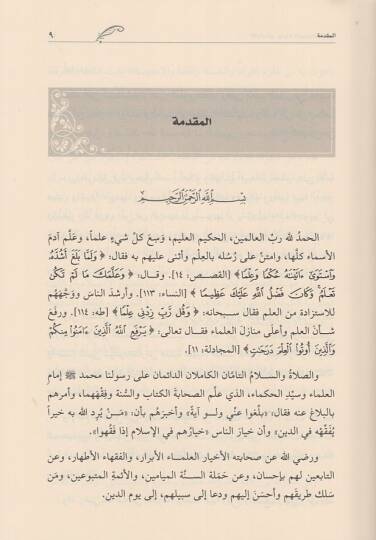 المقدمة
٩
المقدمة
بسم الله الرحمن الرحيم
الحمدُ لله ربِّ العالمين، الحكيم العليم، وَسِعَ كلَّ شيءٍ علماً، وعَلَّم آدمَ
الأسماء كلَّها، وامتنَّ على رُسُله بالعِلْم وأثنى عليهم به فقال: ﴿وَلَمَّا بَلَغَ أَشُدَّهُ
وَاسْتَوَىٰ ءَاتَيْنَاهُ حُكْمًا وَعِلْمًا﴾ [القصص: ١٤]. وقال: ﴿وَعَلَّمَكَ مَا لَمْ تَكُن
تَعْلَمُ وَكَانَ فَضْلُ اللَّهِ عَلَيْكَ عَظِيمًا﴾ [النساء: ١١٣]. وأرشدَ الناسَ ووَجَّهَهُم
للاستزادة من العلم فقال سبحانه: ﴿وَقُل رَّبِّ زِدْنِي عِلْمًا﴾ [طه: ١١٤]. ورفعَ
شأنَ العلم وأعلى منازلَ العلماء فقال تعالى: ﴿يَرْفَعِ اللَّهُ الَّذِينَ ءَامَنُوا مِنكُمْ
وَالَّذِينَ أُوتُوا الْعِلْمَ دَرَجَاتٍ﴾ [المجادلة: ١١].
والصلاةُ والسلامُ التامَّان الكاملان الدائمان على رسولنا محمد ﷺ إمامِ
العلماء وسيِّد الحكماء، الذي علَّم الصحابةَ الكتاب والسُّنة وفقَّهَهما، وأمرهم
بالبلاغ عنه فقال: «بلِّغوا عنِّي ولو آيةً» وأخبرَهُم بأن: «مَنْ يُرِد الله به خيراً
يُفَقِّهْه في الدين» وأن خيارَ الناس «خيارُهم في الإسلام إذا فَقُهوا».
ورضي اللهُ عن صحابته الأخيار العلماء الأبرار، والفقهاء الأطهار، وعن
التابعين لهم بإحسان، وعن حَمَلة السنَّة الميامين، والأئمة المتبوعين، ومَن
سَلك طريقَهم وأحسَنَ إليهم ودعا إلى سبيلهم، إلى يوم الدين.